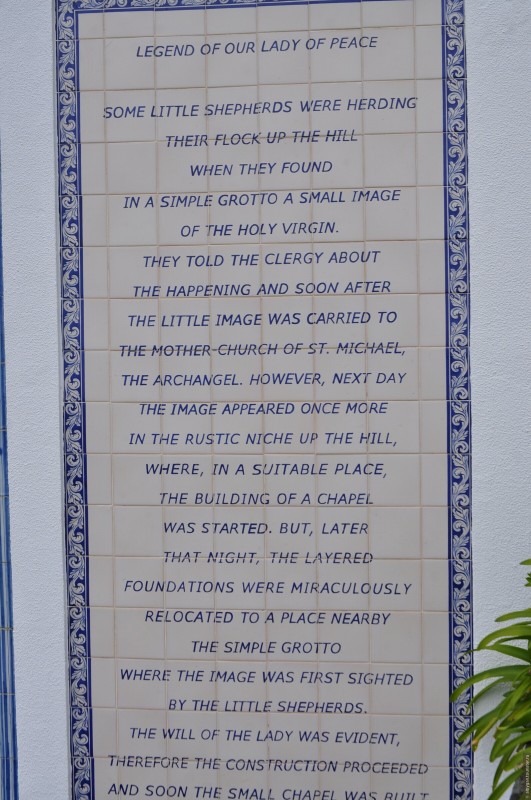 LEGEND OF OUR LADY OF PEACE
SOME LITTLE SHEPHERDS WERE HERDING
THEIR FLOCK UP THE HILL
WHEN THEY FOUND
IN A SIMPLE GROTTO A SMALL IMAGE
OF THE HOLY VIRGIN.
THEY TOLD THE CLERGY ABOUT
THE HAPPENING AND SOON AFTER
THE LITTLE IMAGE WAS CARRIED TO
THE MOTHER-CHURCH OF ST. MICHAEL,
THE ARCHANGEL. HOWEVER, NEXT DAY
THE IMAGE APPEARED ONCE MORE
IN THE RUSTIC NICHE UP THE HILL,
WHERE, IN A SUITABLE PLACE,
THE BUILDING OF A CHAPEL
WAS STARTED. BUT, LATER
THAT NIGHT, THE LAYERED
FOUNDATIONS WERE MIRACULOUSLY
RELOCATED TO A PLACE NEARBY
THE SIMPLE GROTTO
WHERE THE IMAGE WAS FIRST SIGHTED
BY THE LITTLE SHEPHERDS.
THE WILL OF THE LADY WAS EVIDENT,
THEREFORE THE CONSTRUCTION PROCEEDED
AND SOON THE SMALL CHAPEL WAS BUILT